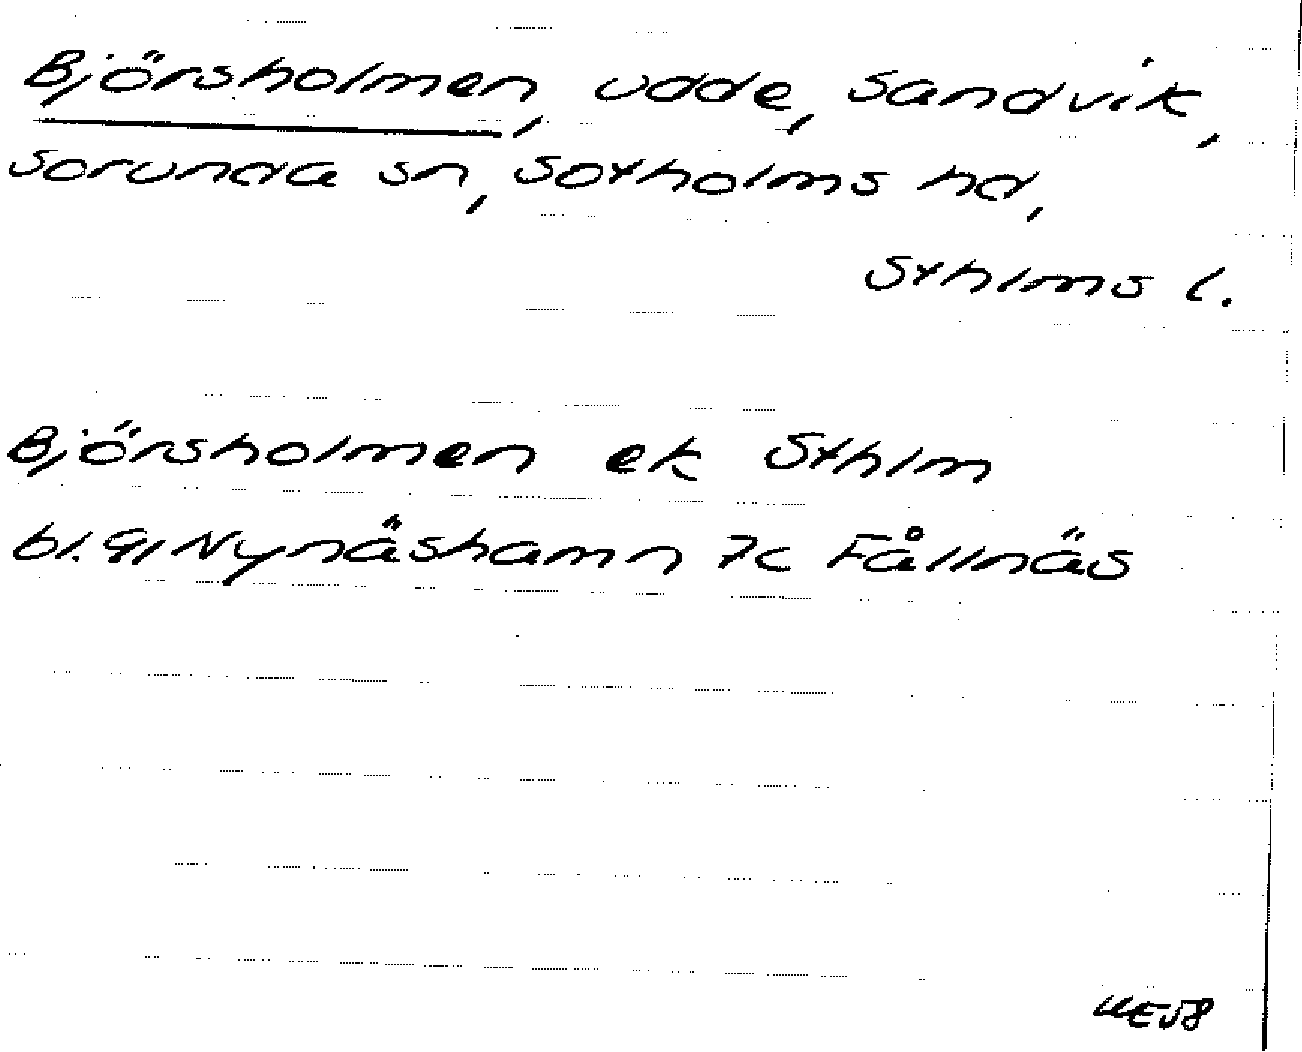 Björsholmen, udde, Sandvik,
Sorunda sn, Sotholms hd,
Sthlms l.
Björsholmen ek Sthlm
bl. 91 Nynäshamn 7c Fållnäs
UE58